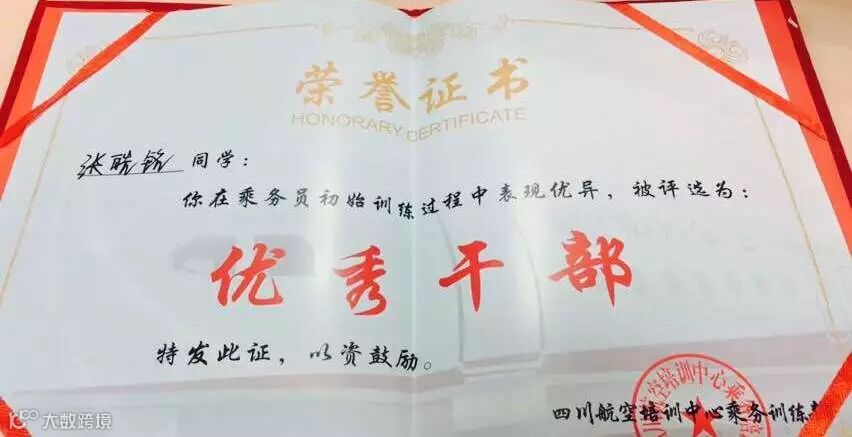 荣誉证书
HONORARY CERTIFICATE
张聪铭 同学:
你在乘务员初始训练过程中表现优异,被评选为:
优秀干部
特发此证,以资鼓励。
川航空培训中心乘务
四川航空培训中心乘务训练
100 大数跨境